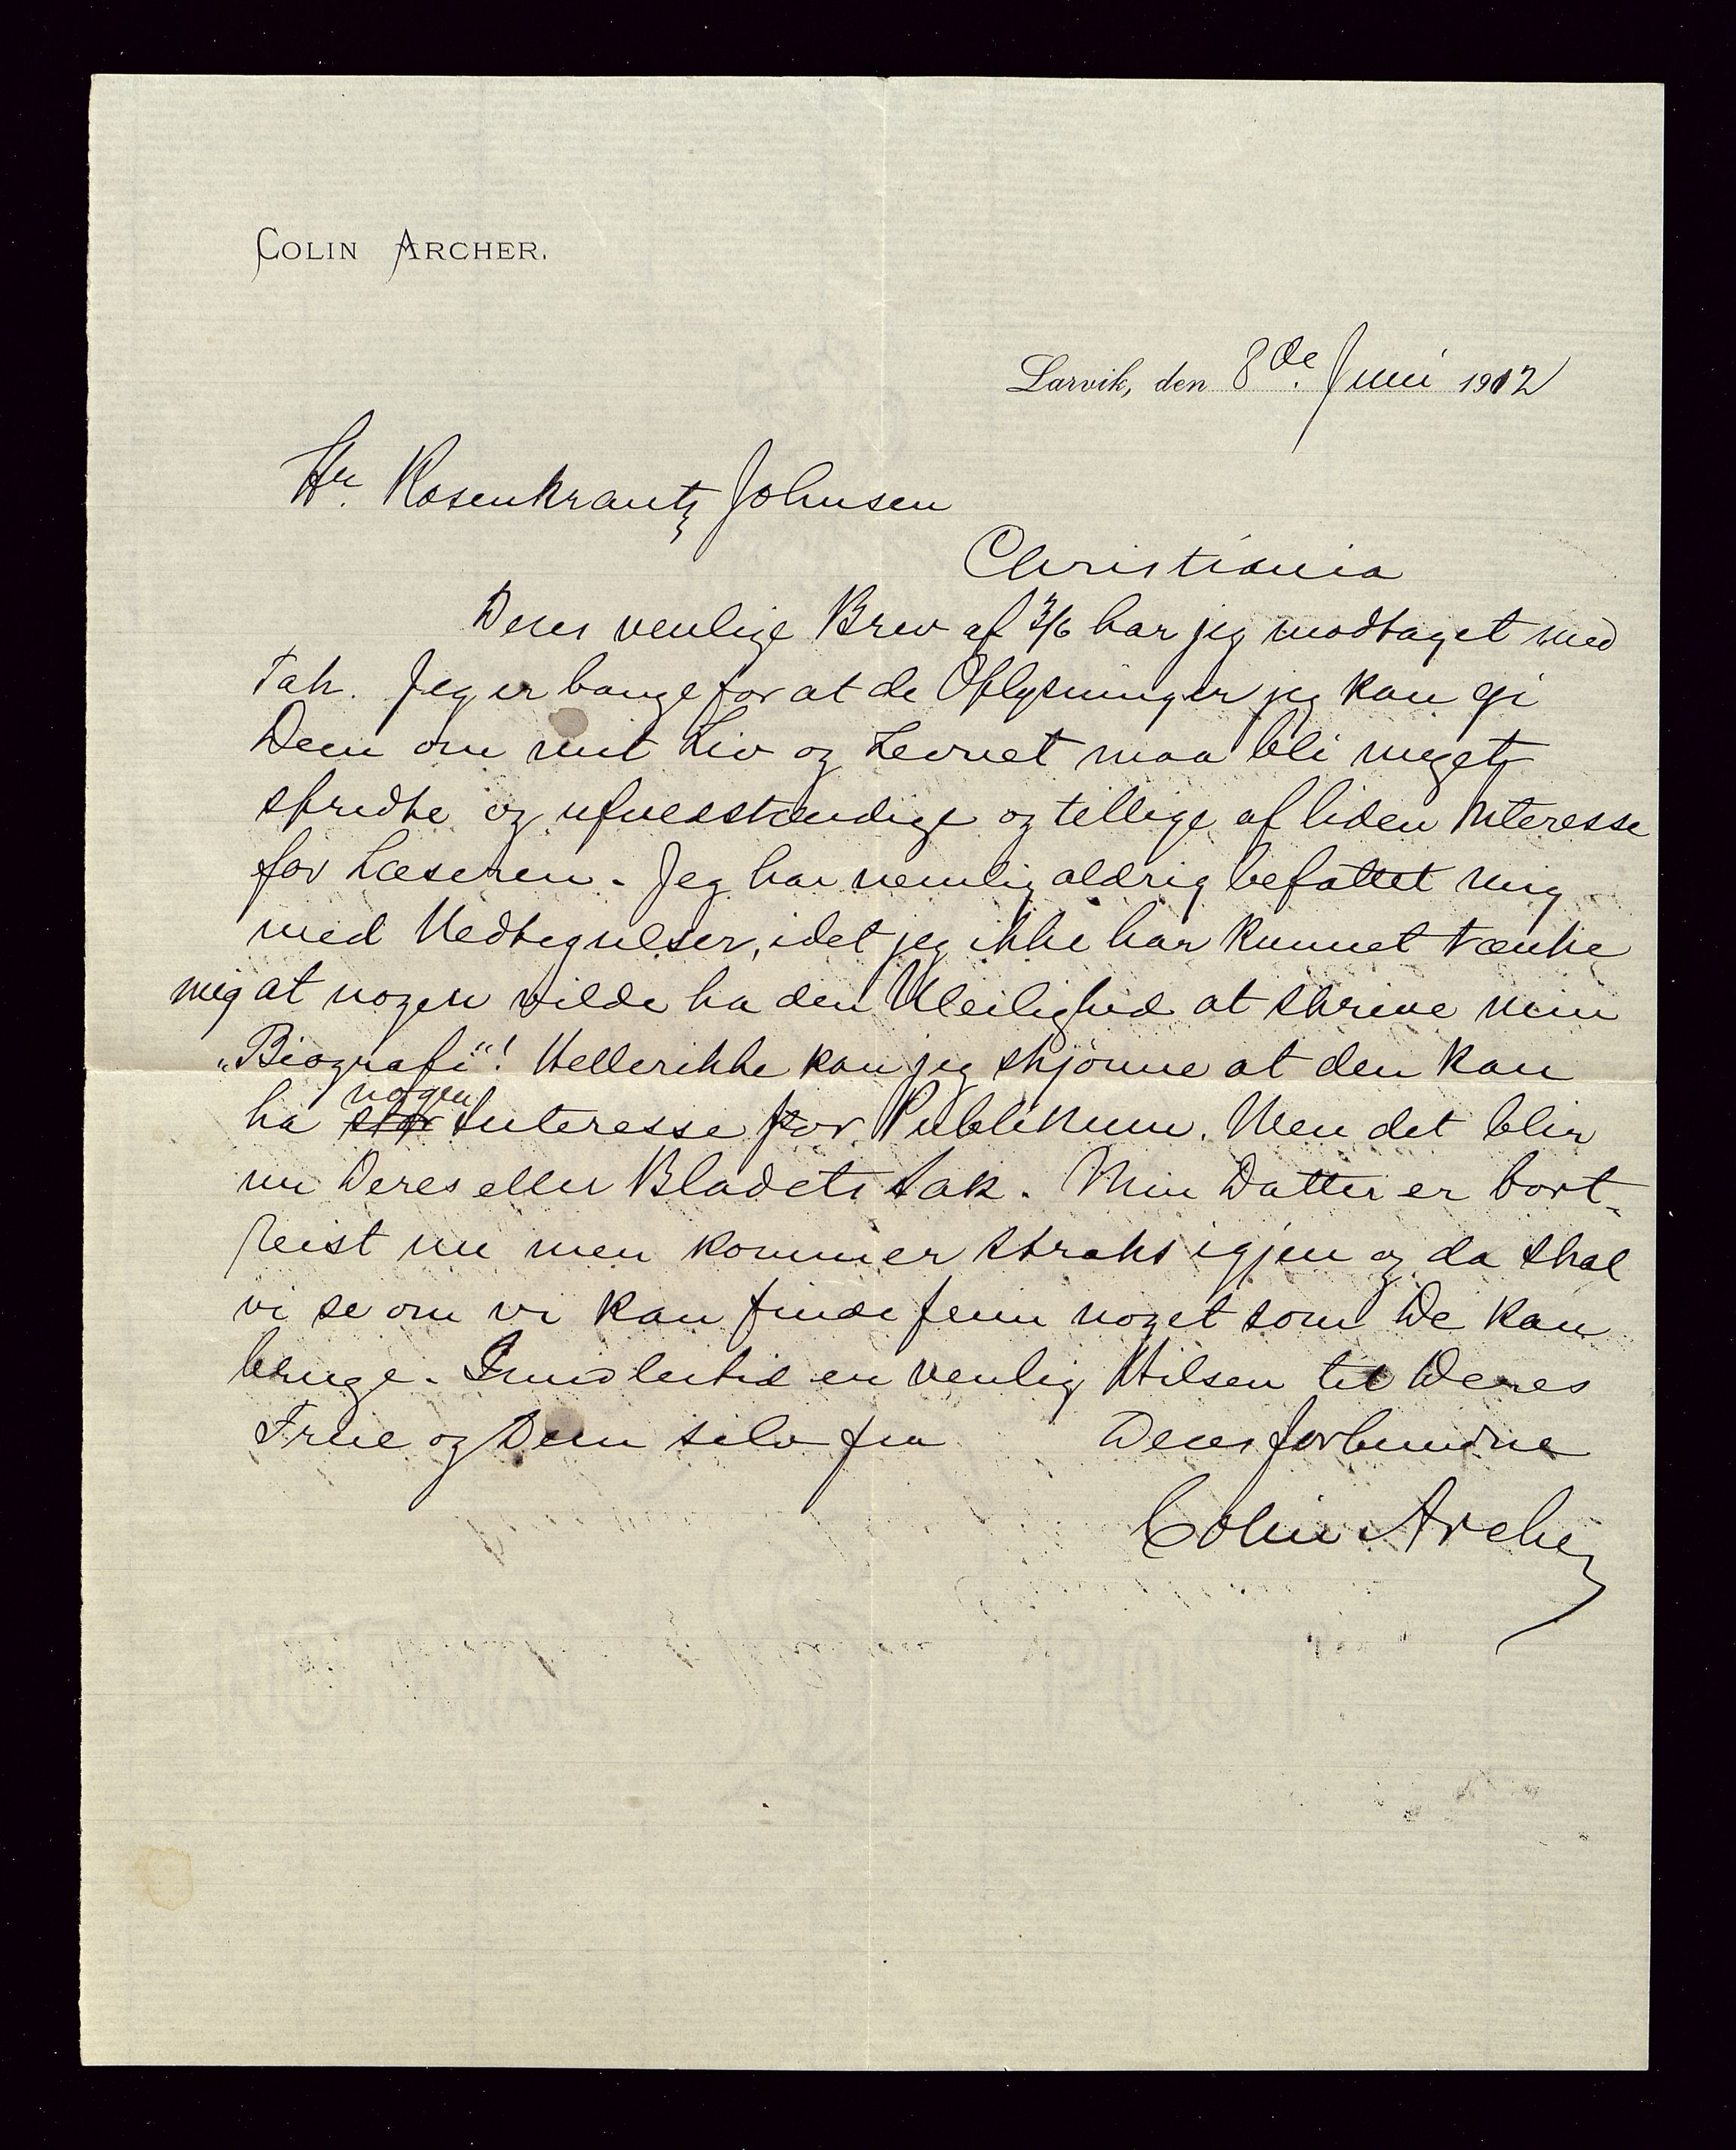 COLIN ARCHER.
Larvik, den 8de. Juni 1912
Hr. Rosenkrantz Johnsen
Christiania
Deres venlige Brev af 7/6 har jeg modtaget med
Tak. Jeg er bange for at de Oplysninger jeg kan gi
Dem om mit Liv og Levnet maa bli meget
spredte og ufuldstændige og tillige af liden Interesse
for Læseren. Jeg har nemlig aldrig befattet mig
med Nedtegnelser, idet jeg ikke har kunnet tænke
mig at nogen vilde ha den Uleilighed at skrive min
„Biografi"! Heller ikke kan jeg skjønne at den kan
ha stor nogen Interesse for Publikum. Men det blir
nu Deres eller Bladets Sak. Min Datter er bort-
reist nu men kommer straks igjen og da skal
vi se om vi kan finde frem noget som De kan
bruge. Imidlertid en venlig Hilsen til Deres
Frue og Dem selv fra Deres forbundne
Colin Archer